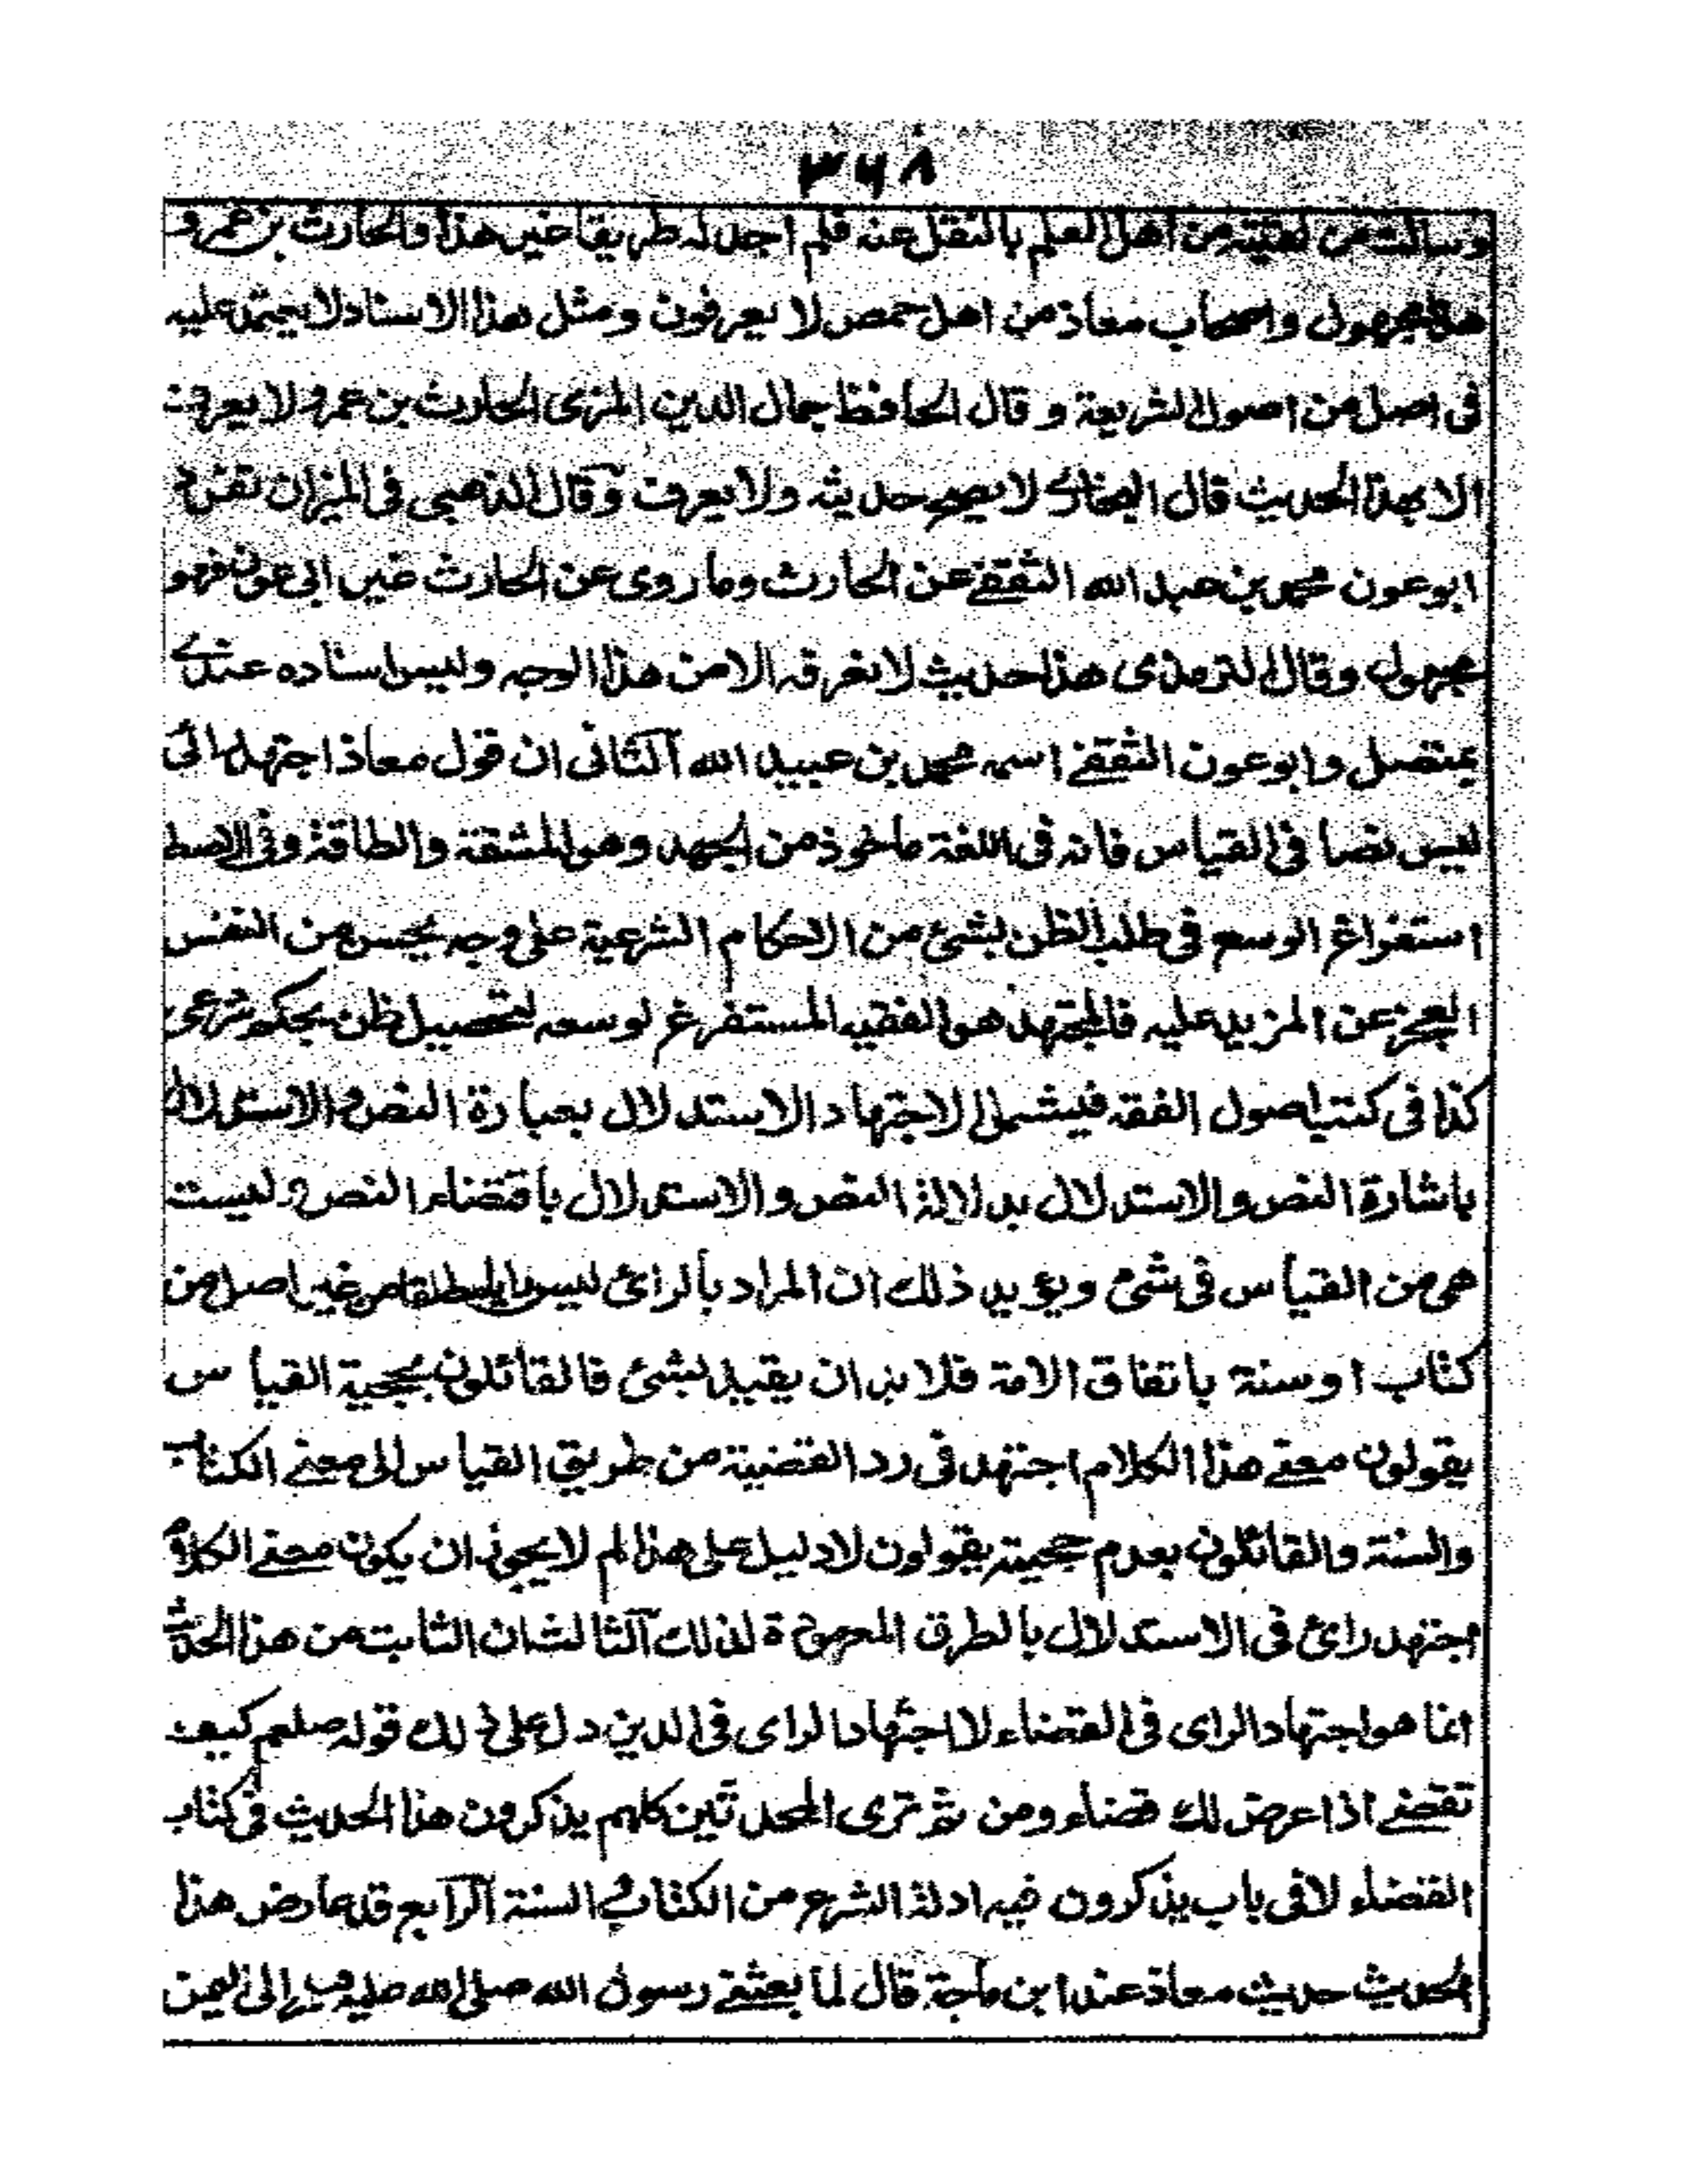 ٣٦٨
وسالت من لقيته من اهل العلم بالنقل عنه فلم اجد له طريقا غير هذا والحارث بن عمرو
هذا مجهول واصحاب معاذ من اهل حمص لا يعرفون ومثل هذا الاسناد لا يعتمد عليه
فى اصل من اصول الشريعة وقال الحافظ جمال الدين المزى الحارث بن عمرو لا يعرف
الا بهذا الحديث قال البخارى لا يصح حديثه ولا يعرف وقال الذهبى فى الميزان تفرد
ابو عون محمد بن عبد الله الثقفى عن الحارث وما روى عن الحارث غير ابى عون فهو
مجهول وقال الترمذى هذا حديث لا نعرفه الا من هذا الوجه وليس اسناده عندى
بمتصل وابو عون الثقفى اسمه محمد بن عبيد الله الثانى ان قول معاذ اجتهد رائى
ليس نصا فى القياس فانه فى اللغة ماخوذ من الجهد وهو المشقة والطاقة وفى الاصط
استفراغ الوسع فى طلب الظن بشئ من الاحكام الشرعية على وجه يحس من النفس
العجز عن المزيد عليه فالمجتهد هو الفقيه المستفرغ لوسعه لتحصيل ظن بحكم شرعى
كذا فى كتب اصول الفقه فيشمل الاجتهاد الاستدلال بعبارة النص والاستدلال
باشارة النص والاستدلال بدلالة النص والاستدلال باقتضاء النص وليست
هى من القياس فى شئ ويؤيد ذلك ان المراد بالرائ ليس رايا مطلقا من غير اصل من
كتاب او سنة باتفاق الامة فلا بد ان يقيد بشئ فالقائلون بحجية القياس
يقولون معنى هذا الكلام اجتهد فى رد القضية من طريق القياس الى معنى الكتاب
والسنة والقائلون بعدم حجيته يقولون لا دليل على هذا لم لا يجوز ان يكون معنى الكلام
اجتهد رائ فى الاستدلال بالطرق المعروفة لذلك الثالث ان الثابت من هذا الحديث
انما هو اجتهاد الراى فى القضاء لا اجتهاد الراى فى الدين دل على ذلك قوله صلعم كيف
تقضى اذا عرض لك قضاء ومن ثم ترى المحدثين كلهم يذكرون هذا الحديث فى كتاب
القضاء لا فى باب يذكرون فيه ادلة الشرع من الكتاب والسنة الرابع قد عارض هذا
الحديث حديث معاذ عند ابن ماجة قال لما بعثنى رسول الله صلى الله عليه وسلم الى اليمن